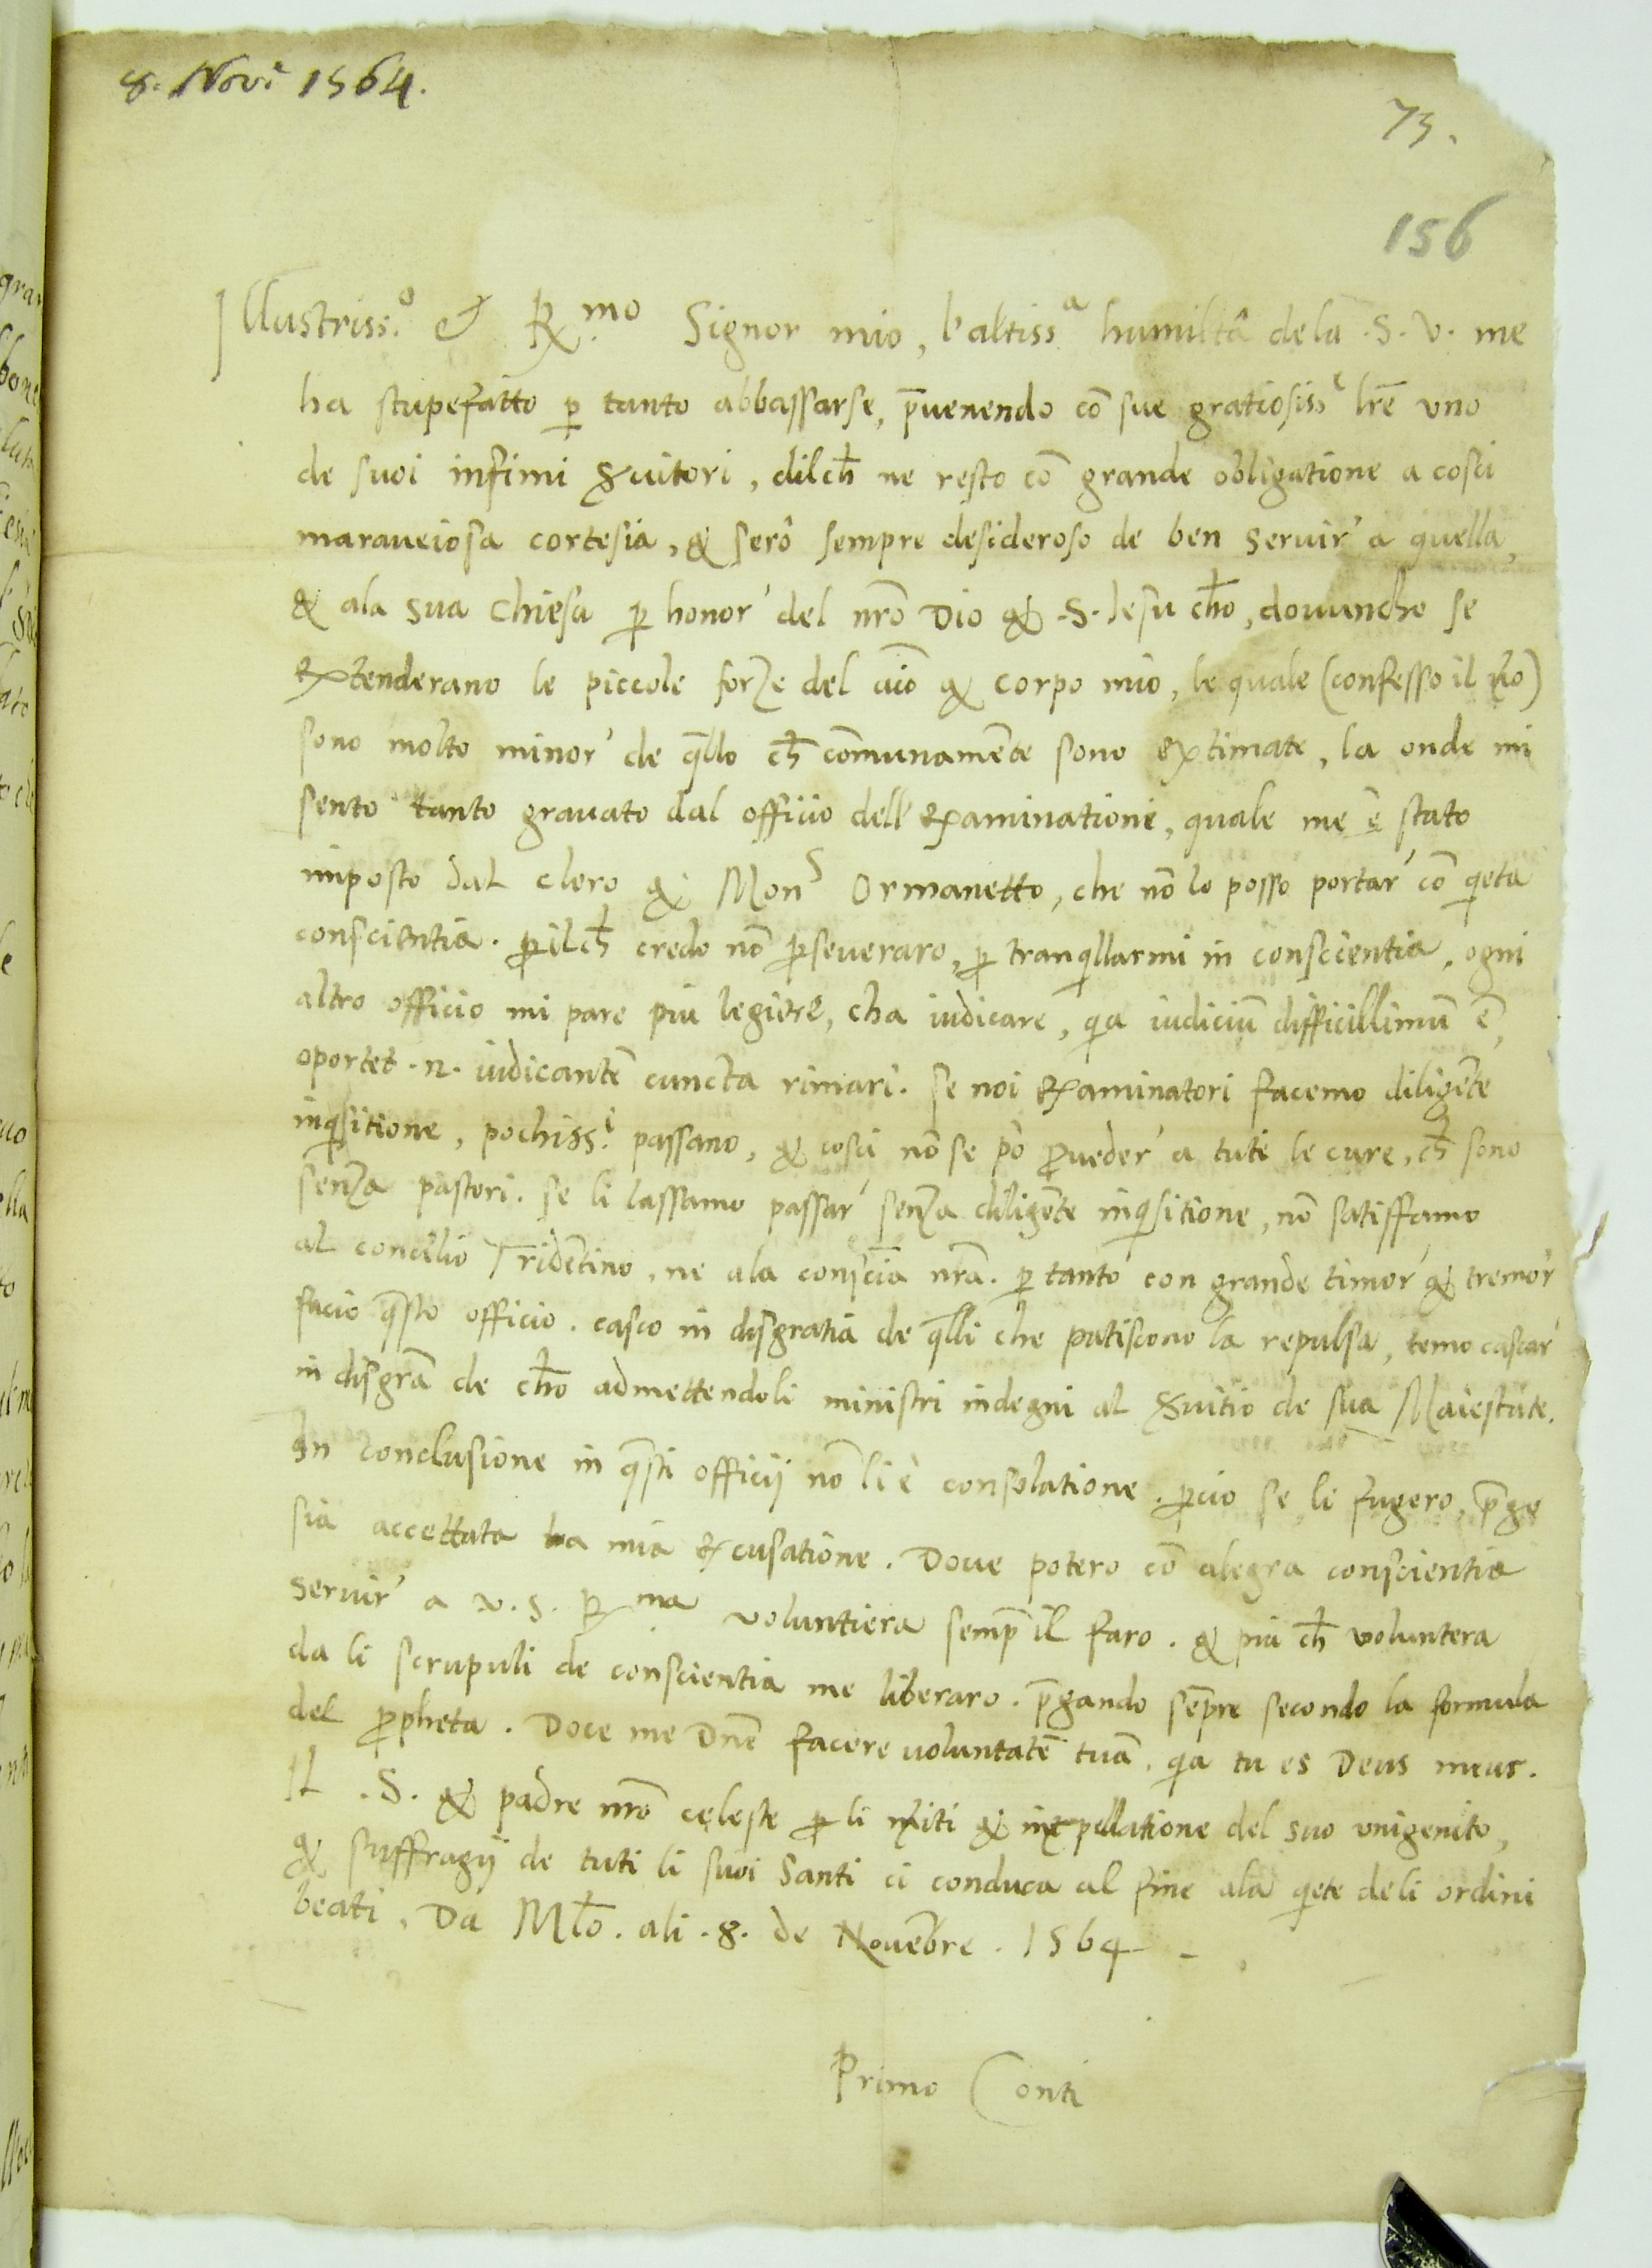 8. Nov. 1564.
73.
156
Illustriss.º & R.mo Signor mio, l'altissª humiltà dela .S.V. me
ha stupefatto p̲ tanto abbassarse, p̄uenendo cō sue gratiosiss.e lrē uno
de suoi infimi s̲uitori, dilch̄ ne resto cō grande obligatione a cosci
maraueiosa cortesia, & serò sempre desideroso de ben seruir' a quella,
& ala sua Chiesa p̲ honor' del nrō Dio & .S. Iesu ch̄o, douunche se
extenderano le piccole forze del aīo & corpo mio, le quale (confesso il u̲o)
sono molto minor' de q̄llo ch̄ cōmunamēte sono extimate, la onde mi
sento tanto grauato dal officio dell' examinatione, quale me è stato
imposto dal clero & Mon.s Ormanetto, che nō lo posso portar' cō q̇eta
conscientia. p̲ilch̄ credo nō p̲seueraro, p̲ tranq̇llarmi in conscientia. ogni
altro officio mi pare piu legiere, cha iudicare, q̇a iudiciū difficillimū ē,
oportet .n. iudicantē cuncta rimari. se noi examinatori facemo diligēte
inq̇sitione, pochiss.i passano, & cosci nō se pò p̲ueder' a tute le cure, ch̄ sono
senza pastori. se li lassamo passar' senza diligēte inq̇sitione, nō satisffamo
al concilio Tridētino, ne ala consciā nrā. p̲ tanto con grande timor' & tremor'
facio q̄sto officio. casco in disgratia de q̄lli che patiscono la repulsa, temo cascar'
in disgrā de ch̄o admettendoli ministri indegni al s̲uitio de sua Maiestate.
In conclusione in q̄sti officij nō li è consolatione. p̲cio se li fugero, p̄go
sia accettata la mia excusatione. Doue potero cō alegra conscientia
seruir' a V.S. R.ma voluntiera semp̄ il faro. & piu ch̄ voluntera
da li scrupuli de conscientia me liberaro. p̄gando sēpre secondo la formula
del p̲pheta. Doce me Dn̄e facere uoluntatē tuā, q̇a tu es Deus meus.
Il .S. & padre nrō celeste p̲ li m̲iti & int̲pellatione del suo unigenito,
& suffragij de tuti li suoi Santi ci conduca al fine ala q̇ete deli ordini
beati. Da Mlō. ali .8. de Nouēbre. 1564
Primo Conti